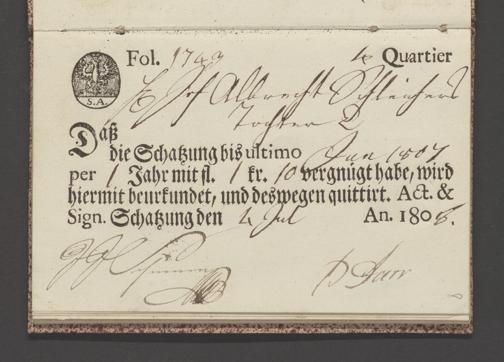 Fol. 1743 4 Quartier
Jos Albrecht Schleichers
Tochter
Daß
die Schatzung bis ultimo Jun 1807
per 1 Jahr mit fl. 1 kr. 10 vergnügt habe, wird
hiermit beurkundet, und deswegen quittirt. Act. &
Sign. Schatzung den 4 Jul An. 1806.
S.A.